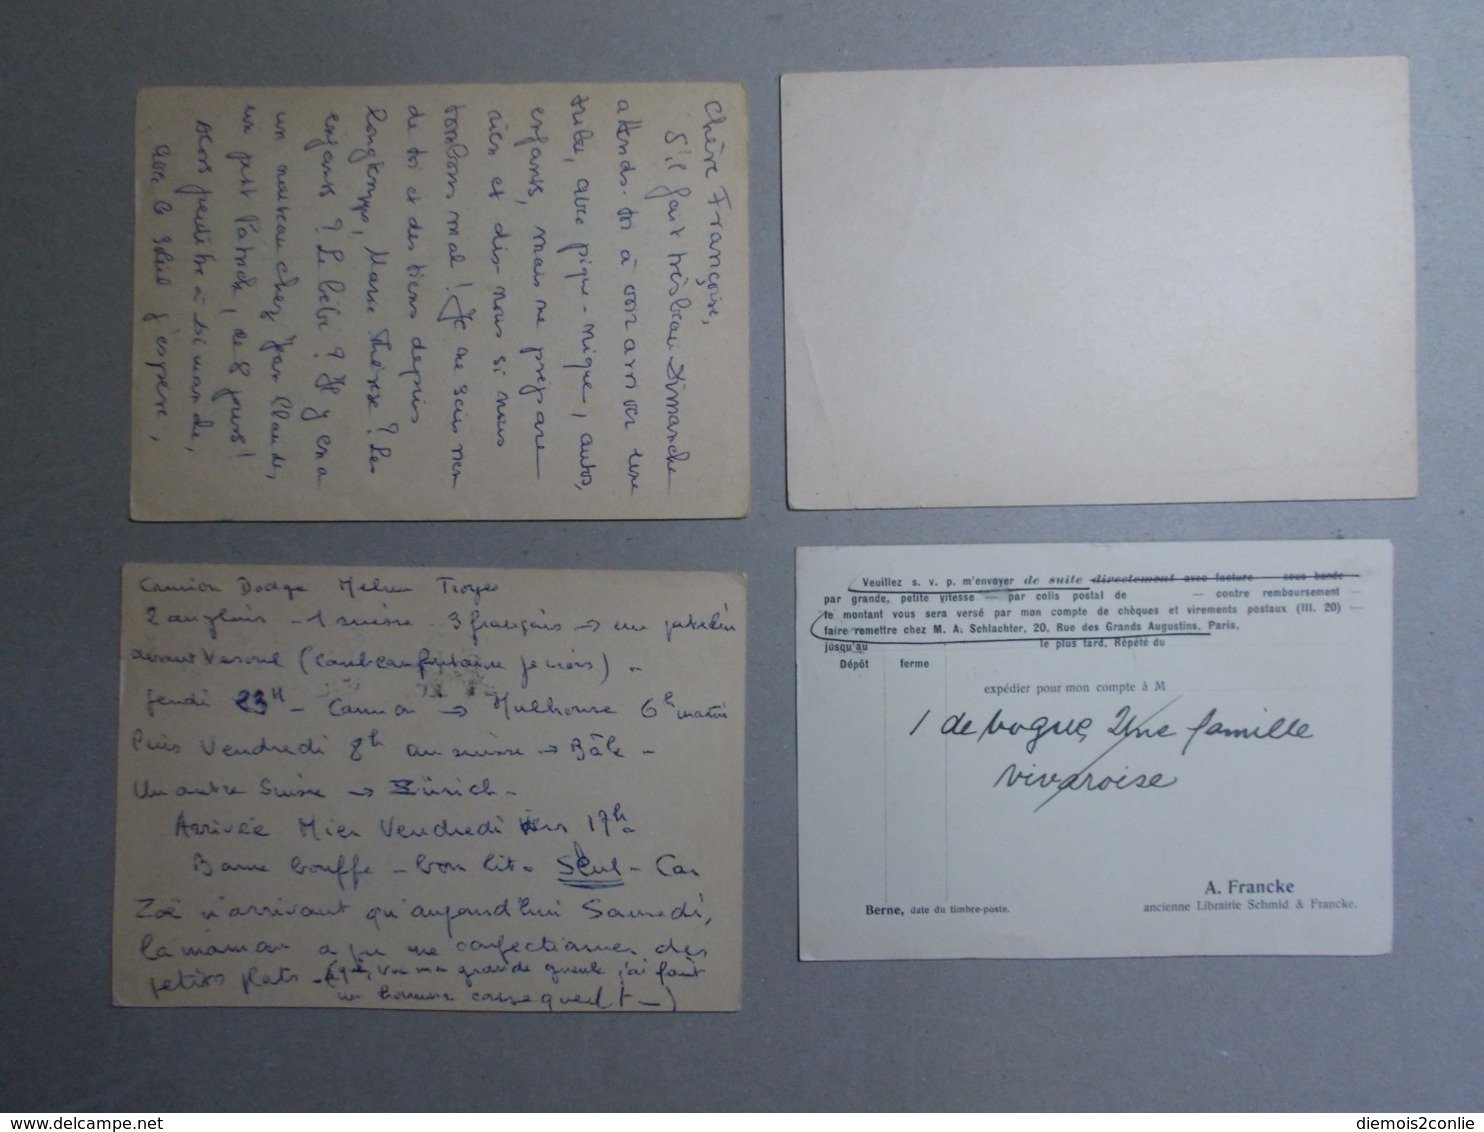 Chère Françoise,
S'il fait très beau Dimanche
attends-toi à voir arriver une
tribu, avec pique-nique, autos,
enfants, mais ne prépare
rien et dis-nous si nous
tombons mal! Je ne sais rien
de toi et des tiens depuis
longtemps, Marie Thérèse? Les
enfants? Le bébé? Il y en a
un nouveau chez Jean Claude,
un petit Patrick, de 8 jours!
Alors peut être à dimanche,
avec le soleil j'espère,
Camion Dodge Melun Troyes
2 anglais - 1 suisse - 3 français → un patelin
avant Vesoul
Jeudi 23H - Camion → Mulhouse 6h matin
Puis Vendredi 8h un suisse → Bâle -
Un autre Suisse → Zürich -
Arrivée Hier Vendredi vers 17h
Bonne bouffe - bon lit - Seul - Car
Zoë n'arrivant qu'aujourd'hui Samedi,
la maman a pu me confectionner des
petits plats - ma grande gueule j'ai fait
Veuillez s. v. p. m'envoyer de suite directement avec facture — sous bande —
par grande, petite vitesse — par colis postal de — contre remboursement —
le montant vous sera versé par mon compte de chèques et virements postaux (III. 20) —
faire remettre chez M. A. Schlachter, 20, Rue des Grands Augustins, Paris,
jusqu'au le plus tard. Répété du
Dépôt ferme
expédier pour mon compte à M
1 de Vogue, Une famille
vivaroise
A. Francke
Berne, date du timbre-poste. ancienne Librairie Schmid & Francke.
delcampe.net
diemois2conlie